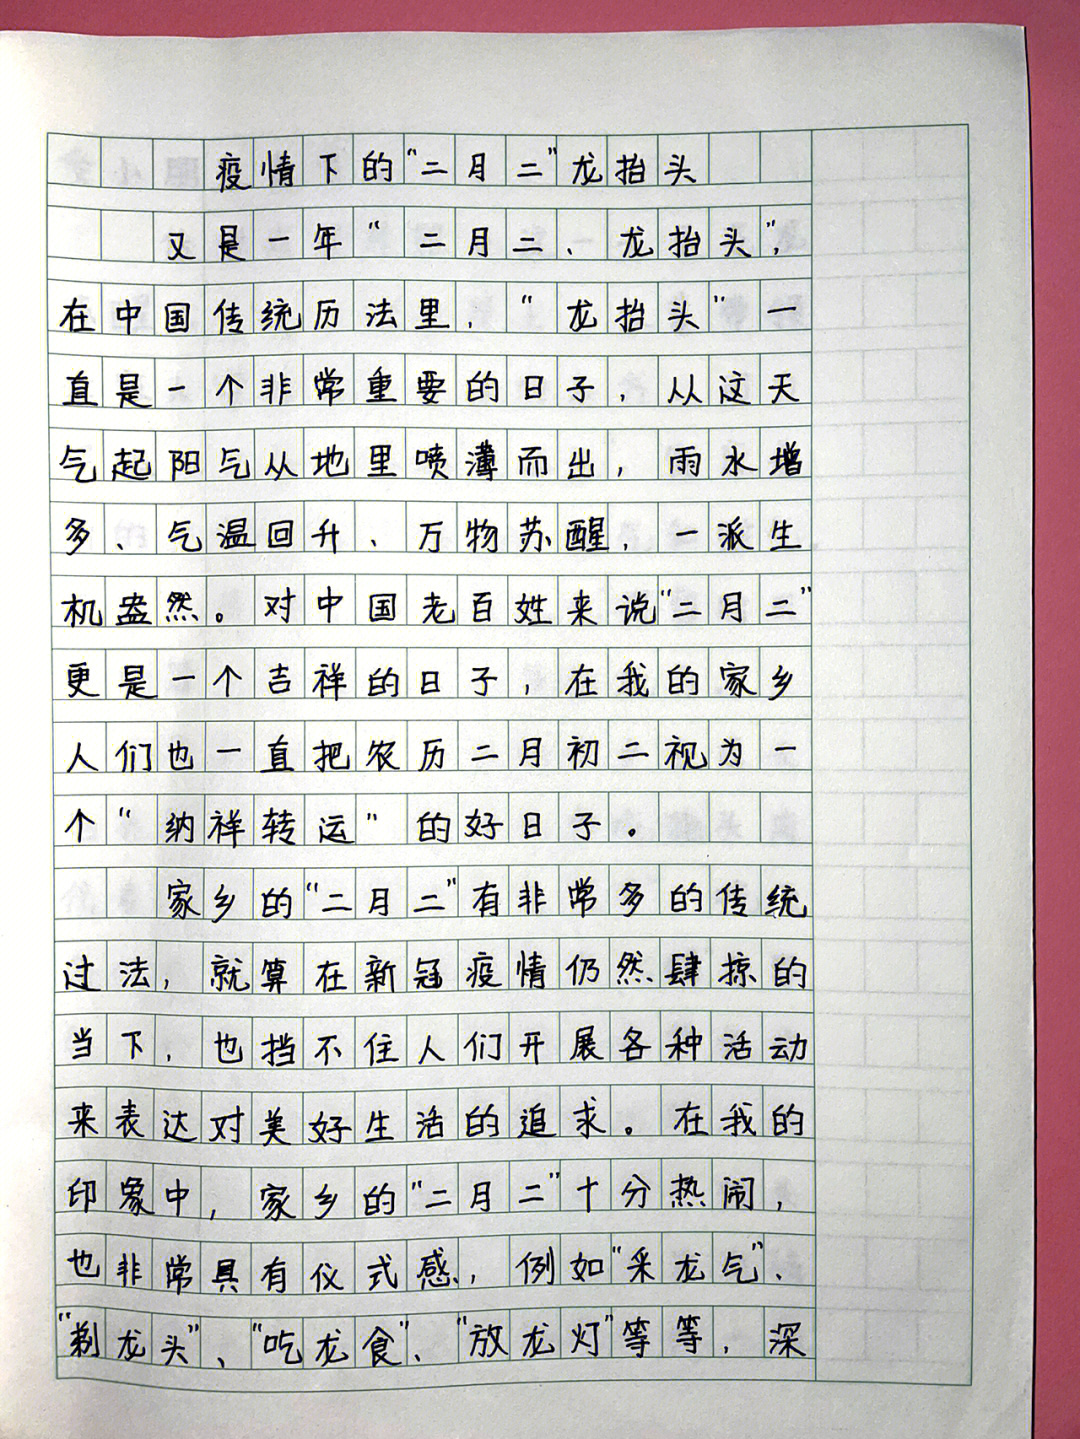 疫情下的“二月二”龙抬头
又是一年“二月二、龙抬头”，
在中国传统历法里，“龙抬头”一
直是一个非常重要的日子，从这天
气起阳气从地里喷薄而出，雨水增
多、气温回升、万物苏醒，一派生
机盎然。对中国老百姓来说“二月二”
更是一个吉祥的日子，在我的家乡
人们也一直把农历二月初二视为一
个“纳祥转运”的好日子。
家乡的“二月二”有非常多的传统
过法，就算在新冠疫情仍然肆掠的
当下，也挡不住人们开展各种活动
来表达对美好生活的追求。在我的
印象中，家乡的“二月二”十分热闹，
也非常具有仪式感，例如“采龙气”、
“剃龙头”、“吃龙食”、“放龙灯”等等，深